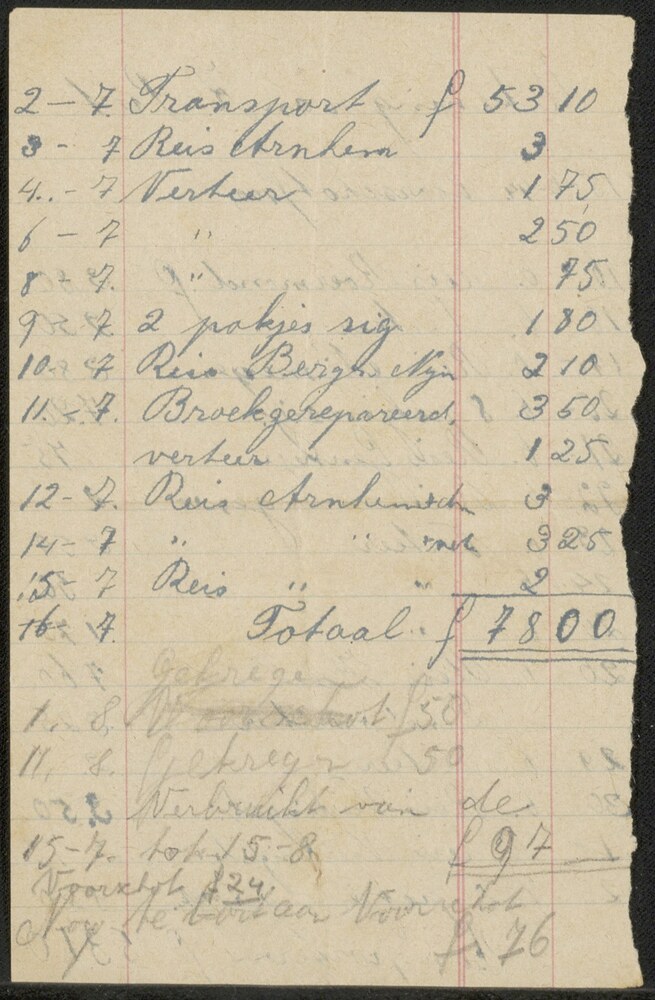 2 - 7. Transport f 53 10
3 - 7 Reis Arnhem 3
4. - 7 Verteer 1 75
6 - 7 " 2 50
8 - 7. " 75
9 7. 2 pakjes sig 1 80
10 - 7 Reis Bergh Nijn 2 10
11. - 7. Broek gerepareerd. 3 50
verteer 1 25
12 - 7. Reis 3
14 - 7 " " 3 25
15 - 7 Reis " " 2
16 - 7. Totaal f 78 00
Gekregen
1. 8. f 50
11. 8. Gekregen f 50
Verbruikt van de
15 - 7. tot 15 - 8. f 97
Voorschot f 24.
te Voorschot
f. 76